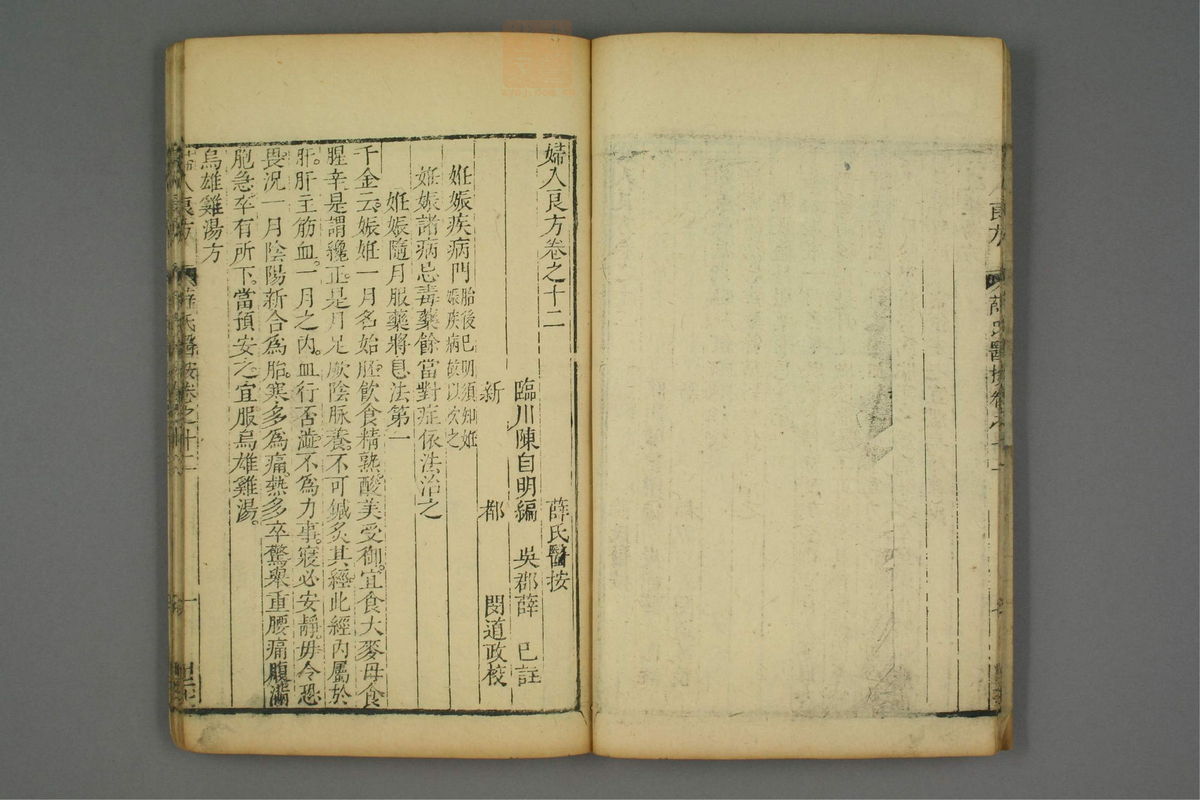 婦人良方卷之十二
薛氏醫按
臨川陳自明編 吳郡薛 已註
新 都 閔道政校
妊娠疾病門胎後已明須知妊
娠疾病故以次之
妊娠諸病忌毒藥餘當對症依法治之
妊娠隨月服藥將息法第一
千金云娠妊一月名始胚飲食精熟酸美受御宜食大麥毋食
腥辛是謂纔正是月足厥陰脉養不可鍼灸其經此經內屬於
肝肝主筋血一月之內血行否澁不為力事寢必安靜毋令恐
畏況一月陰陽新合為胎寒多為痛熱多卒驚舉重腰痛腹滿
胞急卒有所下當預安之宜服烏雄雞湯
烏雄雞湯方
婦人良方 薛氏醫按卷之十二 一